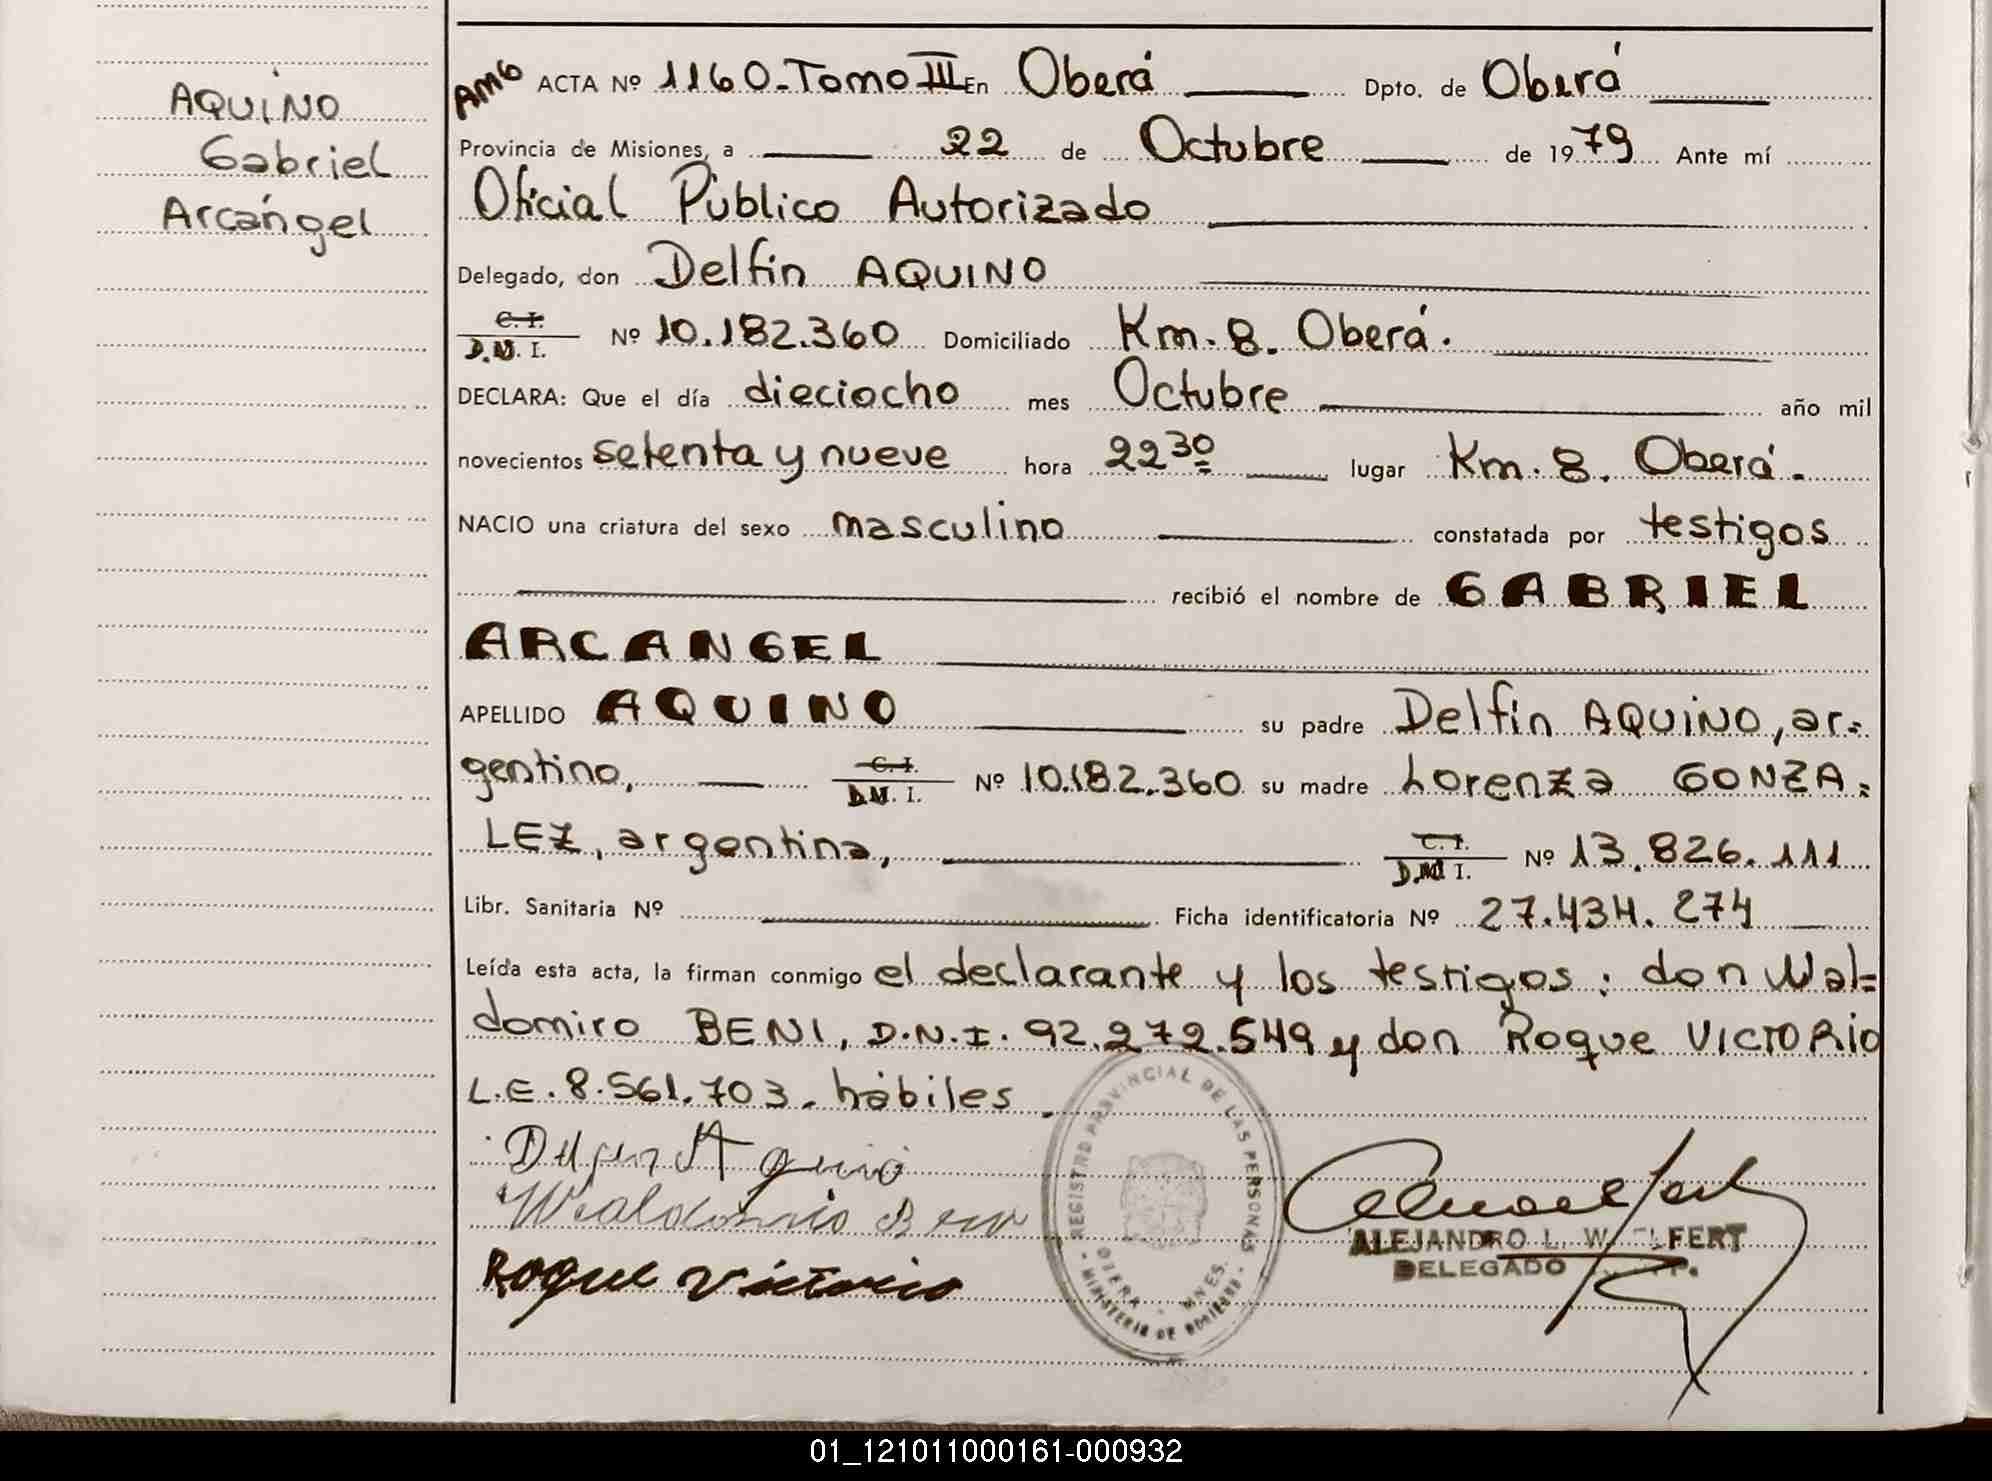 AQUINO
Gabriel
Arcángel
AMG ACTA Nº 1160-Tomo III En Oberá Dpto. de Oberá
Provincia de Misiones, a 22 de Octubre de 1979 Ante mí
Oficial Público Autorizado
Delegado, don Delfin AQUINO
C. I.
D.N. I. Nº 10.182.360 Domiciliado Km. 8. Oberá.
DECLARA: Que el día dieciocho mes Octubre año mil
novecientos setenta y nueve hora 22 30 lugar Km. 8. Oberá.
NACIO una criatura del sexo masculino constatada por testigos
recibió el nombre de GABRIEL
ARCANGEL
APELLIDO AQUINO su padre Delfín AQUINO, ar=
gentino, C. I. D.N. I. Nº 10.182.360 su madre Lorenza GONZA=
LEZ, argentina, C. I. D.N. I. Nº 13.826.111
Libr. Sanitaria Nº Ficha identificatoria Nº 27.434.274
Leída esta acta, la firman conmigo el declarante y los testigos: don Wal=
domiro BENI, D.N.I. 92.272.549 y don Roque VICTORIO
L.E. 8.561.703. hábiles.
REGISTRO PROVINCIAL DE LAS PERSONAS
OBERA - MNES.
MINISTERIO DE GOBIERNO
Delfin Aquino
Waldomiro Beni
Roque Victorio
ALEJANDRO L.
DELEGADO
01_121011000161-000932